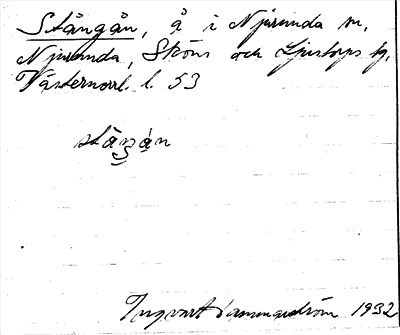 Stångån, å i Njurunda sn,
Njurunda, Sköns och Ljustorps tg,
Västernorrl. l. 53
ståŋån
Ingvar Hammarström 1932